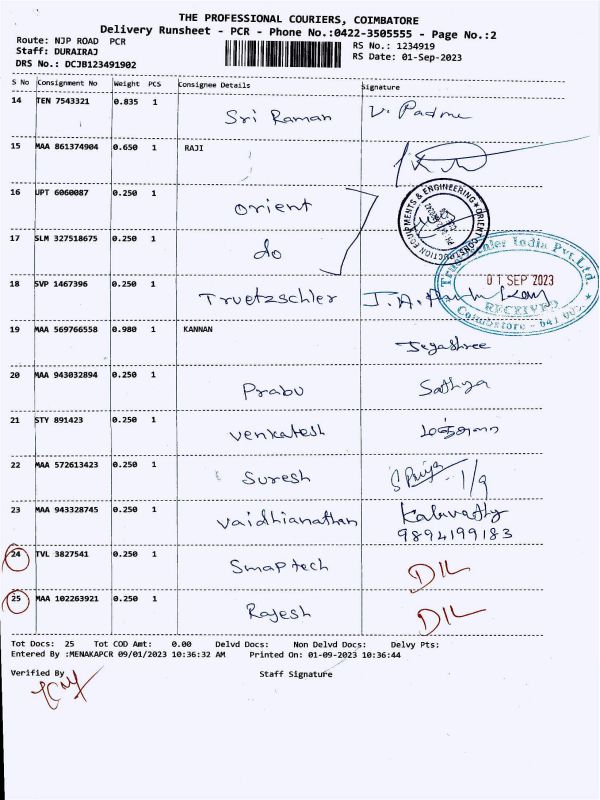 THE PROFESSIONAL COURIERS, COIMBATORE
Delivery Runsheet - PCR - Phone No.:0422-3505555 - Page No.:2
Route: NJP ROAD PCR
RS No.: 1234919
Staff: DURAIRAJ
RS Date: 01-Sep-2023
DRS No.: DCJB123491902
S No Consignment No Weight PCS Consignee Details Signature
14 TEN 7543321 0.835 1 Sri Raman V. Padma
15 MAA 861374904 0.650 1 RAJI
16 UPT 6060087 0.250 1 orient
17 SLM 327518675 0.250 1 do
18 SVP 1467396 0.250 1 Truetzschler
01 SEP 2023
RECEIVED
19 MAA 569766558 0.980 1 KANNAN Jeyashree
20 MAA 943032894 0.250 1 Prabu Sathya
21 STY 891423 0.250 1 venkatesh
22 MAA 572613423 0.250 1 Suresh S Priya 1/9
23 MAA 943328745 0.250 1 Vaidhianathan Kalavathy
9894199183
24 TVL 3827541 0.250 1 Smaptech DIL
25 MAA 102263921 0.250 1 Rajesh DIL
Tot Docs: 25 Tot COD Amt: 0.00 Delvd Docs: Non Delvd Docs: Delvy Pts:
Entered By :MENAKAPCR 09/01/2023 10:36:32 AM Printed On: 01-09-2023 10:36:44
Verified By Staff Signature